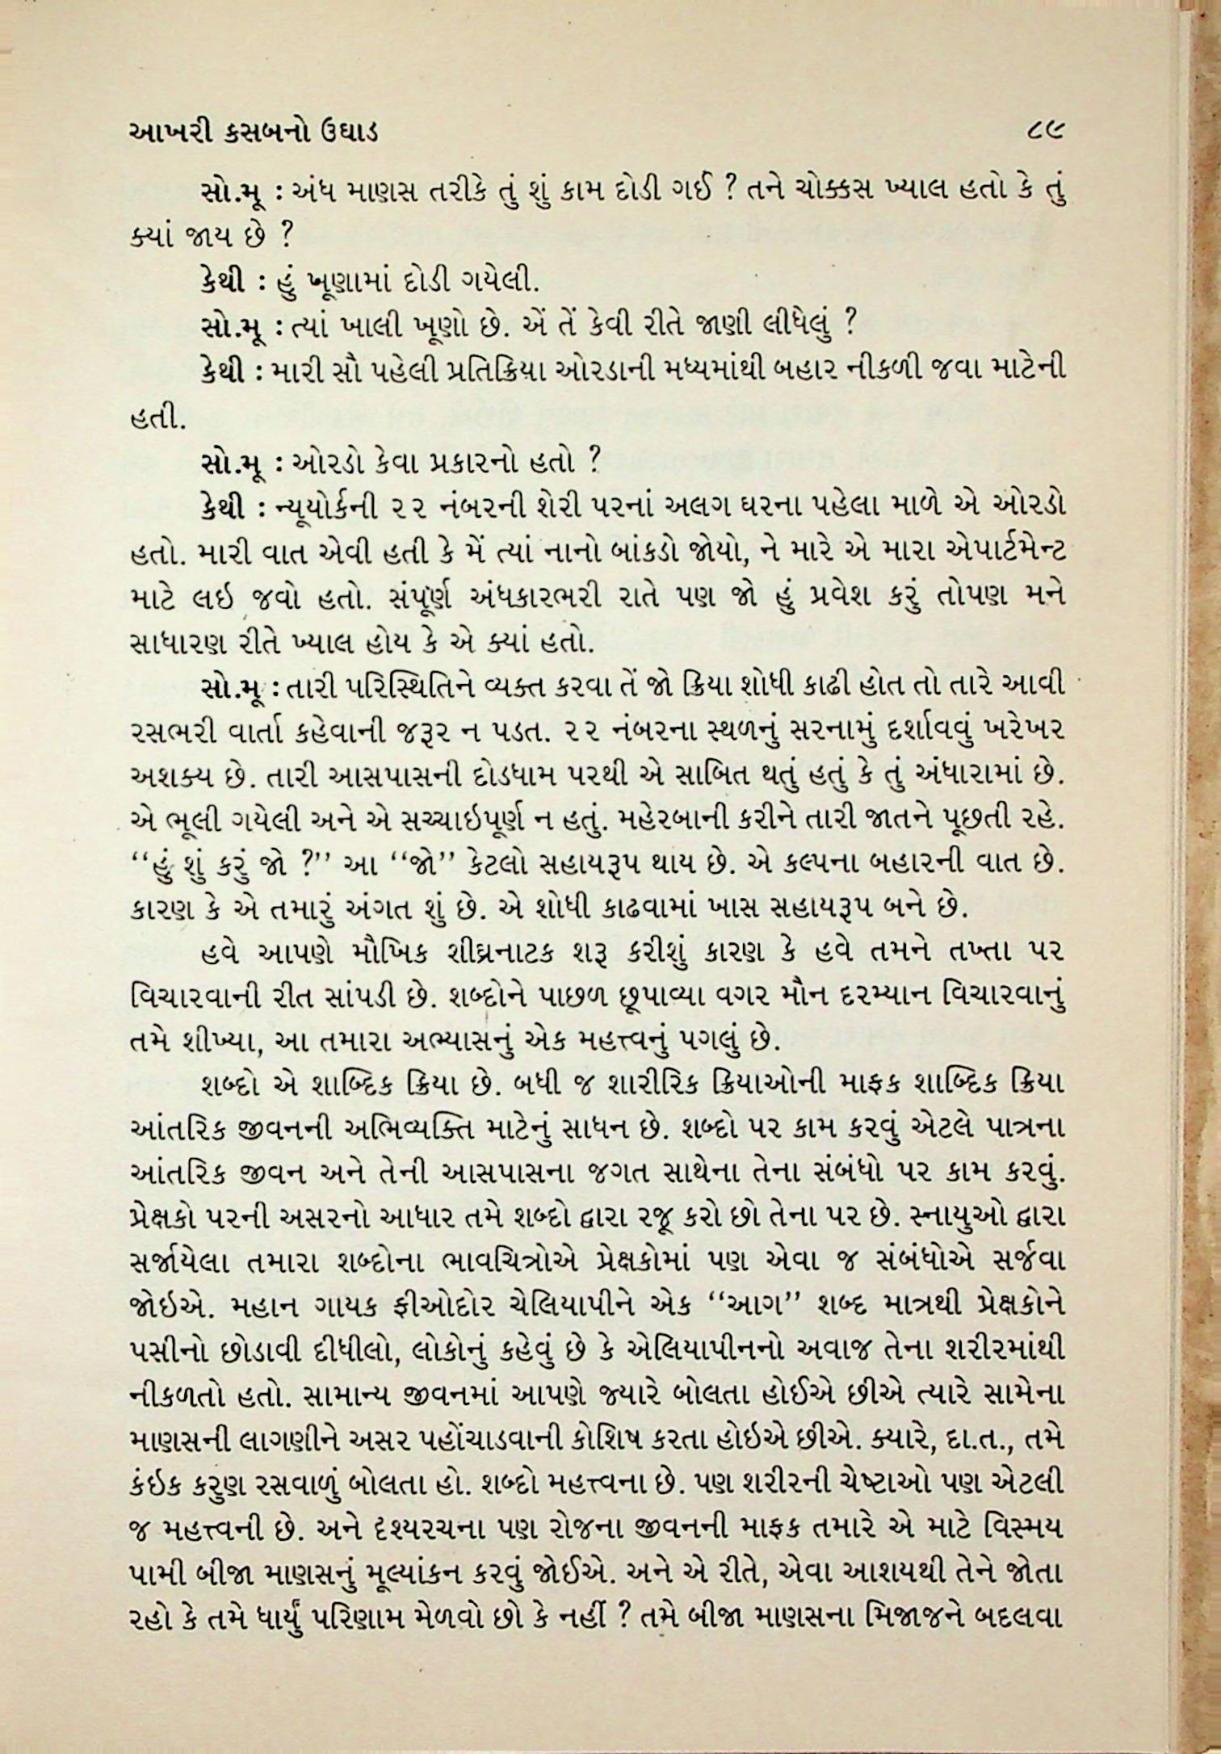 આખરી કસબનો ઉઘાડ ૮૯
સો.મૂ : અંધ માણસ તરીકે તું શું કામ દોડી ગઈ ? તને ચોક્કસ ખ્યાલ હતો કે તું
ક્યાં જાય છે ?
કેથી : હું ખૂણામાં દોડી ગયેલી.
સો.મૂ : ત્યાં ખાલી ખૂણો છે. એં તેં કેવી રીતે જાણી લીધેલું ?
કેથી : મારી સૌ પહેલી પ્રતિક્રિયા ઓરડાની મધ્યમાંથી બહાર નીકળી જવા માટેની
હતી.
સો.મૂ : ઓરડો કેવા પ્રકારનો હતો ?
કેથી : ન્યૂયોર્કની ૨૨ નંબરની શેરી પરનાં અલગ ઘરના પહેલા માળે એ ઓરડો
હતો. મારી વાત એવી હતી કે મેં ત્યાં નાનો બાંકડો જોયો, ને મારે એ મારા એપાર્ટમેન્ટ
માટે લઇ જવો હતો. સંપૂર્ણ અંધકારભરી રાતે પણ જો હું પ્રવેશ કરું તોપણ મને
સાધારણ રીતે ખ્યાલ હોય કે એ ક્યાં હતો.
સો.મૂ : તારી પરિસ્થિતિને વ્યક્ત કરવા તેં જો ક્રિયા શોધી કાઢી હોત તો તારે આવી
રસભરી વાર્તા કહેવાની જરૂર ન પડત. ૨૨ નંબરના સ્થળનું સરનામું દર્શાવવું ખરેખર
અશક્ય છે. તારી આસપાસની દોડધામ પરથી એ સાબિત થતું હતું કે તું અંધારામાં છે.
એ ભૂલી ગયેલી અને એ સચ્ચાઇપૂર્ણ ન હતું. મહેરબાની કરીને તારી જાતને પૂછતી રહે.
‘‘હું શું કરું જો ?’’ આ ‘‘જો’’ કેટલો સહાયરૂપ થાય છે. એ કલ્પના બહારની વાત છે.
કારણ કે એ તમારું અંગત શું છે. એ શોધી કાઢવામાં ખાસ સહાયરૂપ બને છે.
હવે આપણે મૌખિક શીઘ્રનાટક શરૂ કરીશું કારણ કે હવે તમને તખ્તા પર
વિચારવાની રીત સાંપડી છે. શબ્દોને પાછળ છૂપાવ્યા વગર મૌન દરમ્યાન વિચારવાનું
તમે શીખ્યા, આ તમારા અભ્યાસનું એક મહત્ત્વનું પગલું છે.
શબ્દો એ શાબ્દિક ક્રિયા છે. બધી જ શારીરિક ક્રિયાઓની માફક શાબ્દિક ક્રિયા
આંતરિક જીવનની અભિવ્યક્તિ માટેનું સાધન છે. શબ્દો પર કામ કરવું એટલે પાત્રના
આંતરિક જીવન અને તેની આસપાસના જગત સાથેના તેના સંબંધો પર કામ કરવું.
પ્રેક્ષકો પરની અસરનો આધાર તમે શબ્દો દ્વારા રજૂ કરો છો તેના પર છે. સ્નાયુઓ દ્વારા
સર્જાયેલા તમારા શબ્દોના ભાવચિત્રોએ પ્રેક્ષકોમાં પણ એવા જ સંબંધોએ સર્જવા
જોઇએ. મહાન ગાયક ફીઓદોર ચેલિયાપીને એક ‘‘આગ’’ શબ્દ માત્રથી પ્રેક્ષકોને
પસીનો છોડાવી દીધીલો, લોકોનું કહેવું છે કે એલિયાપીનનો અવાજ તેના શરીરમાંથી
નીકળતો હતો. સામાન્ય જીવનમાં આપણે જ્યારે બોલતા હોઈએ છીએ ત્યારે સામેના
માણસની લાગણીને અસર પહોંચાડવાની કોશિષ કરતા હોઇએ છીએ. ક્યારે, દા.ત., તમે
કંઇક કરુણ રસવાળું બોલતા હો. શબ્દો મહત્ત્વના છે. પણ શરીરની ચેષ્ટાઓ પણ એટલી
જ મહત્ત્વની છે. અને દશ્યરચના પણ રોજના જીવનની માફક તમારે એ માટે વિસ્મય
પામી બીજા માણસનું મૂલ્યાંકન કરવું જોઈએ. અને એ રીતે, એવા આશયથી તેને જોતા
રહો કે તમે ધાર્યું પરિણામ મેળવો છો કે નહીં ? તમે બીજા માણસના મિજાજને બદલવા